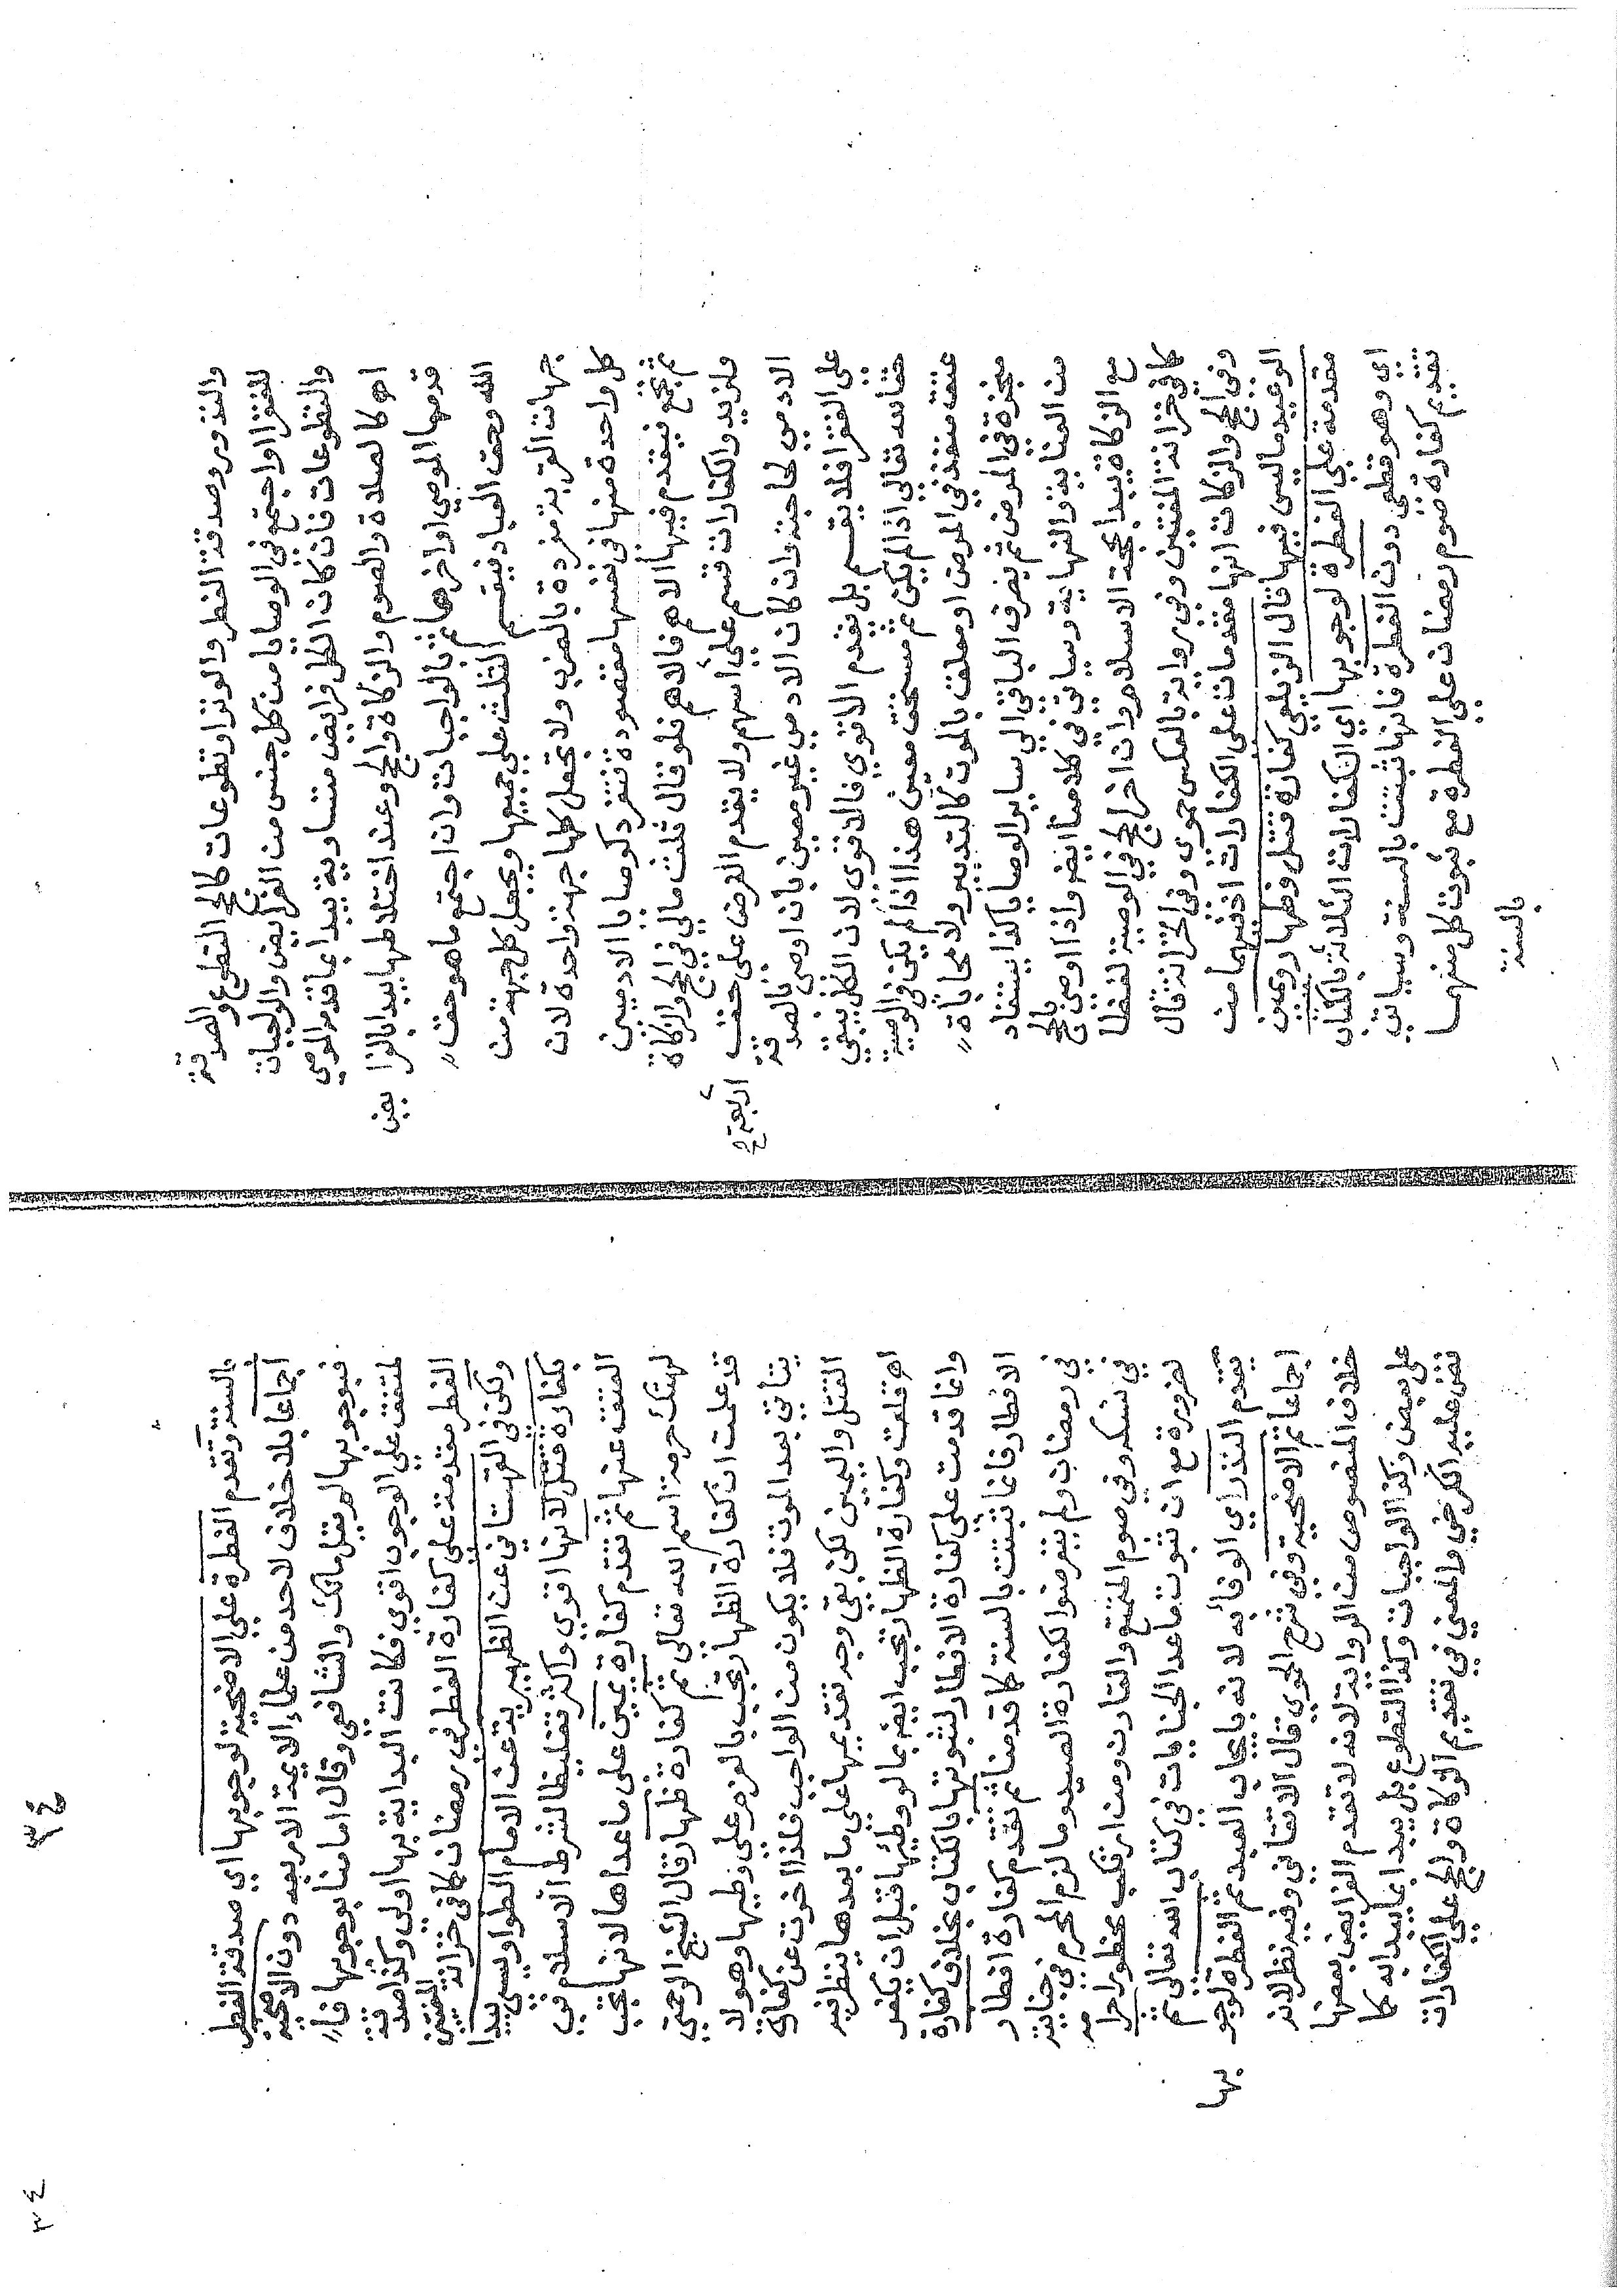 والنذور وصدقة الفطر والوتر او تطوعات كالحج التطوع والصدقة
للفقرا او اجتمع في الوصايا من كل جنس من الفرايض والواجبات
والتطوعات فان كان الكل فرايض متساوية يبدا بما قدمه الموصي
اه كالصلاة والصوم والزكاة والحج وعند اختلاطها يبدا بالفرايض
قدمها الموصي او اخرها ثم بالواجبات وان اجتمع ما هو حق
الله وحق العباد فيقسم الثلث على جميعها ويجعل كل جهة من
جهات القربة مفردة بالضرب ولا تجعل كلها جهة واحدة لان
كل واحدة منها في نفسها مقصودة فتنفرد كوصايا الادميين
ثم تجمع فيقدم فيها الاهم فالاهم فلو قال ثلث مالي في الحج والزكاة
ولزيد والكفارات قسم على أربعة أسهم ولا يقدم الفرض على حق
الادمي لحاجته وان كان الادمي غير معين بان اوصى بالصدقة
على الفقرا فلا يقسم بل يقدم الاقوى فالاقوى لان الكل يبقى
حقا لله تعالى اذا لم يكن ثم مستحق معين هذا اذا لم يكن في الوصية
عتق منفذ في المرض او معلق بالموت كالتدبير ولا محاباة
منجزة في المرض ثم يصرف الباقي الى ساير الوصايا كذا يستفاد
من العناية والنهاية وسياتي في كلامنا ايض واذا اوصى بالحج
مع الزكاة يبدا بحجة الاسلام وان اخر الحج في الوصية لفظا
كما في خزانة المفتين وفي رواية بالعكس حموي وفي الخزانة قال
وفي الحج والزكات انها مقدمات على الكفارات اذ فيهما من
الوعيد ما ليس فيها قال الزيلعي كفارة قتل وظهار ويمين
مقدمة على الفطرة لوجوبها اي الكفارات الثلاثة بالكتاب
اي وهو قطعي دون الفطرة فانها ثبتت بالسنة وسياتي
تقديم كفارة صوم رمضان على الفطرة مع ثبوت كل منهما
بالسنة
بالسنة وتقدم الفطرة على الاضحية لوجوبها اي صدقة الفطر
اجماعا بلا خلاف لاحد من علماء الايمة الاربعة دون الاضحية
فبوجوبها لم يقل مالك والشافعي وقال امامنا بوجوبها فا
لمتفق على الوجوب اقوى فكانت البداية بها اولى وكذا صدقة
الفطر مقدمة على كفارة الفطر في رمضان كما في خزانة المفتين
ولكن في القهستاني عن الظهيرية عن الامام الطواويسي يبدا
بكفارة قتل لانها اقوى واكثر تغليظا لشرط الاسلام في
العتق عنها ثم تقدم كفارة يمين على ما عداها لانها تجب
لهتك حرمة اسم الله تعالى ثم كفارة ظهار قال الشيخ الرحمتي
قد علمت ان كفارة الظهار تجب بالعزم على وطيها وهو لا
يتاتي بعد الموت فلا يكون من الواجب فلذا اخرت عن كفارة
القتل واليمين لكن بقي وجه تقديمها على ما بعدها ينظر فيه
اه قلت وكفارة الظهار تجب ايض بما لو وطئها قبل ان يكفر
وانما قدمت على كفارة الافطار لثبوتها بالكتاب بخلاف كفارة
الافطار فانما ثبتت بالسنة كما قدمنا ثم تقدم كفارة افطار
في رمضان ولم يتعرضوا لكفارة الصيد وما لزم المحرم في جناية
في نسكه وفي صوم المتمتع والقارن ومن ارتكب محظور احرامه
لضرورة مع ان ثبوت ما عدا الجنايات في كتاب الله تعالى ثم
يقدم النذر اي الوفاء به لانه بايجاب العبد ثم الفطرة لوجوبها
اجماعا ثم الاضحية وفي شرح الحموي قال الاتقاني وفيه نظر لانه
خلاف المنصوص من الرواية لانه لا تقدم الفرايض بعضها
على بعض وكذا الواجبات وكذا التطوع بل يبدا بما يبدا به كما
نص عليه الكرخي والمعنى في تقديم الزكاة والحج على الكفارات
٣٤
٣٤